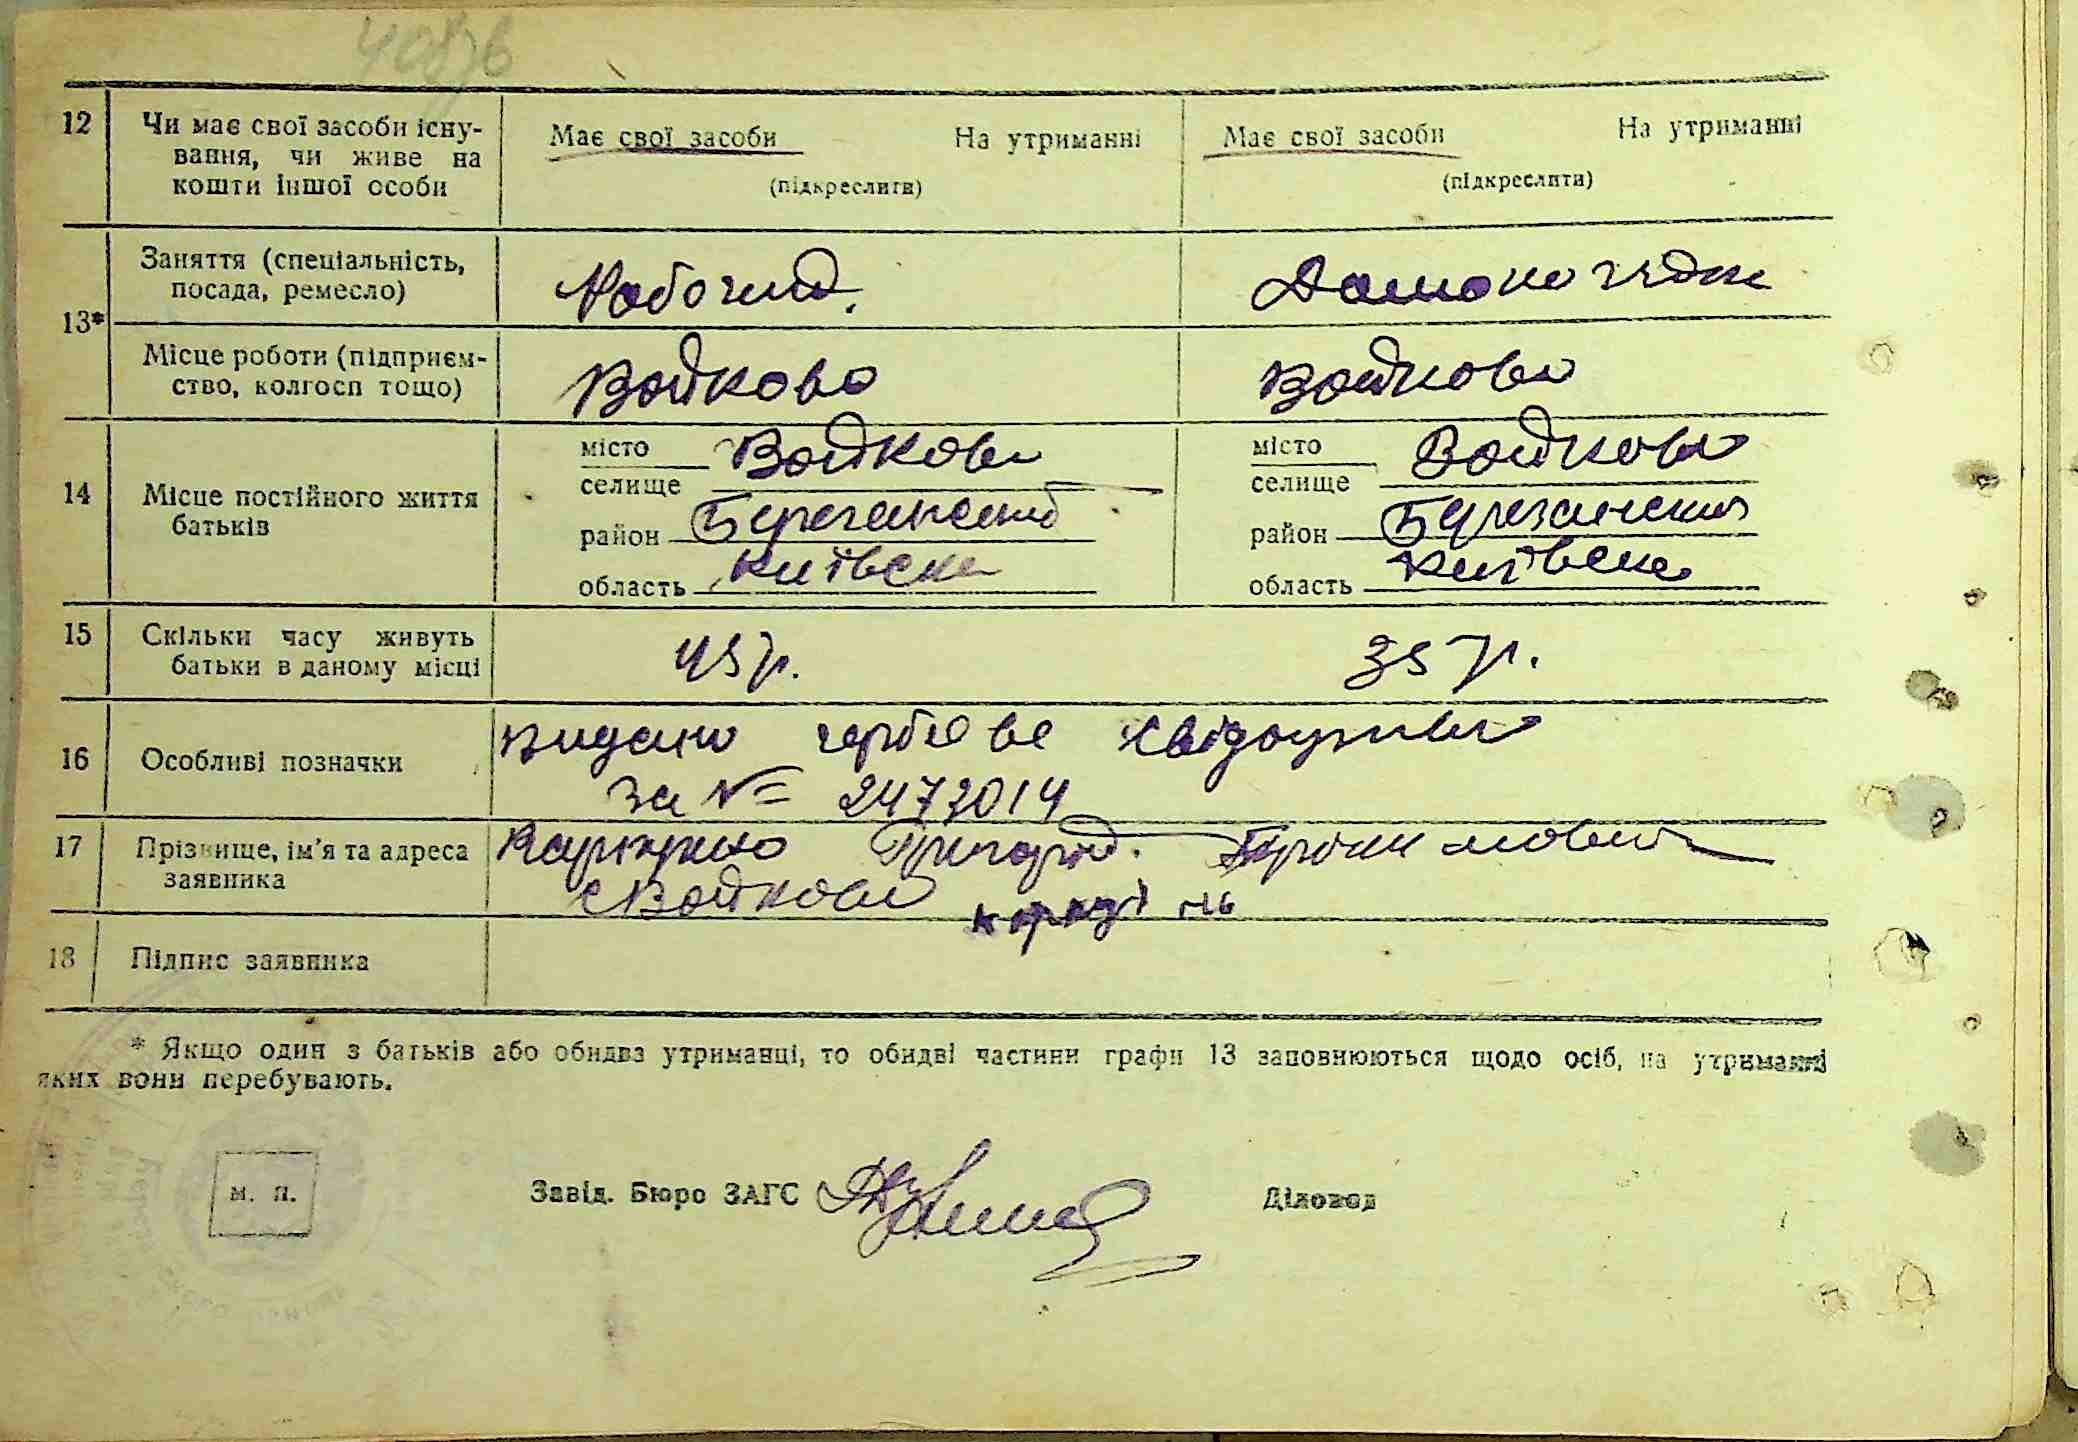 12 Чи має свої засоби існу-
вання, чи живе на
кошти іншої особи
Має свої засоби На утриманні
(підкреслити)
Має свої засоби На утриманні
(підкреслити)
13*
Заняття (спеціальність,
посада, ремесло)
Робочий.
Домохозяйка
Місце роботи (підприєм-
ство, колгосп тощо)
Войково
Войкове
14 Місце постійного життя
батьків
місто
селище Войкове
район Березанский
область Київська
місто
селище Войкове
район Березанский
область Київська
15 Скільки часу живуть
батьки в даному місці
45 р.
35 р.
16 Особливі позначки
Видано гербове свідоцтво
За № 2473014
17 Прізвище, ім'я та адреса
заявника
Григорій
с Войкове
18 Підпис заявника
* Якщо один з батьків або обидва утриманці, то обидві частини графи 13 заповнюються щодо осіб, на утриманні
яких вони перебувають.
м. п.
Завід. Бюро ЗАГС
Діловод